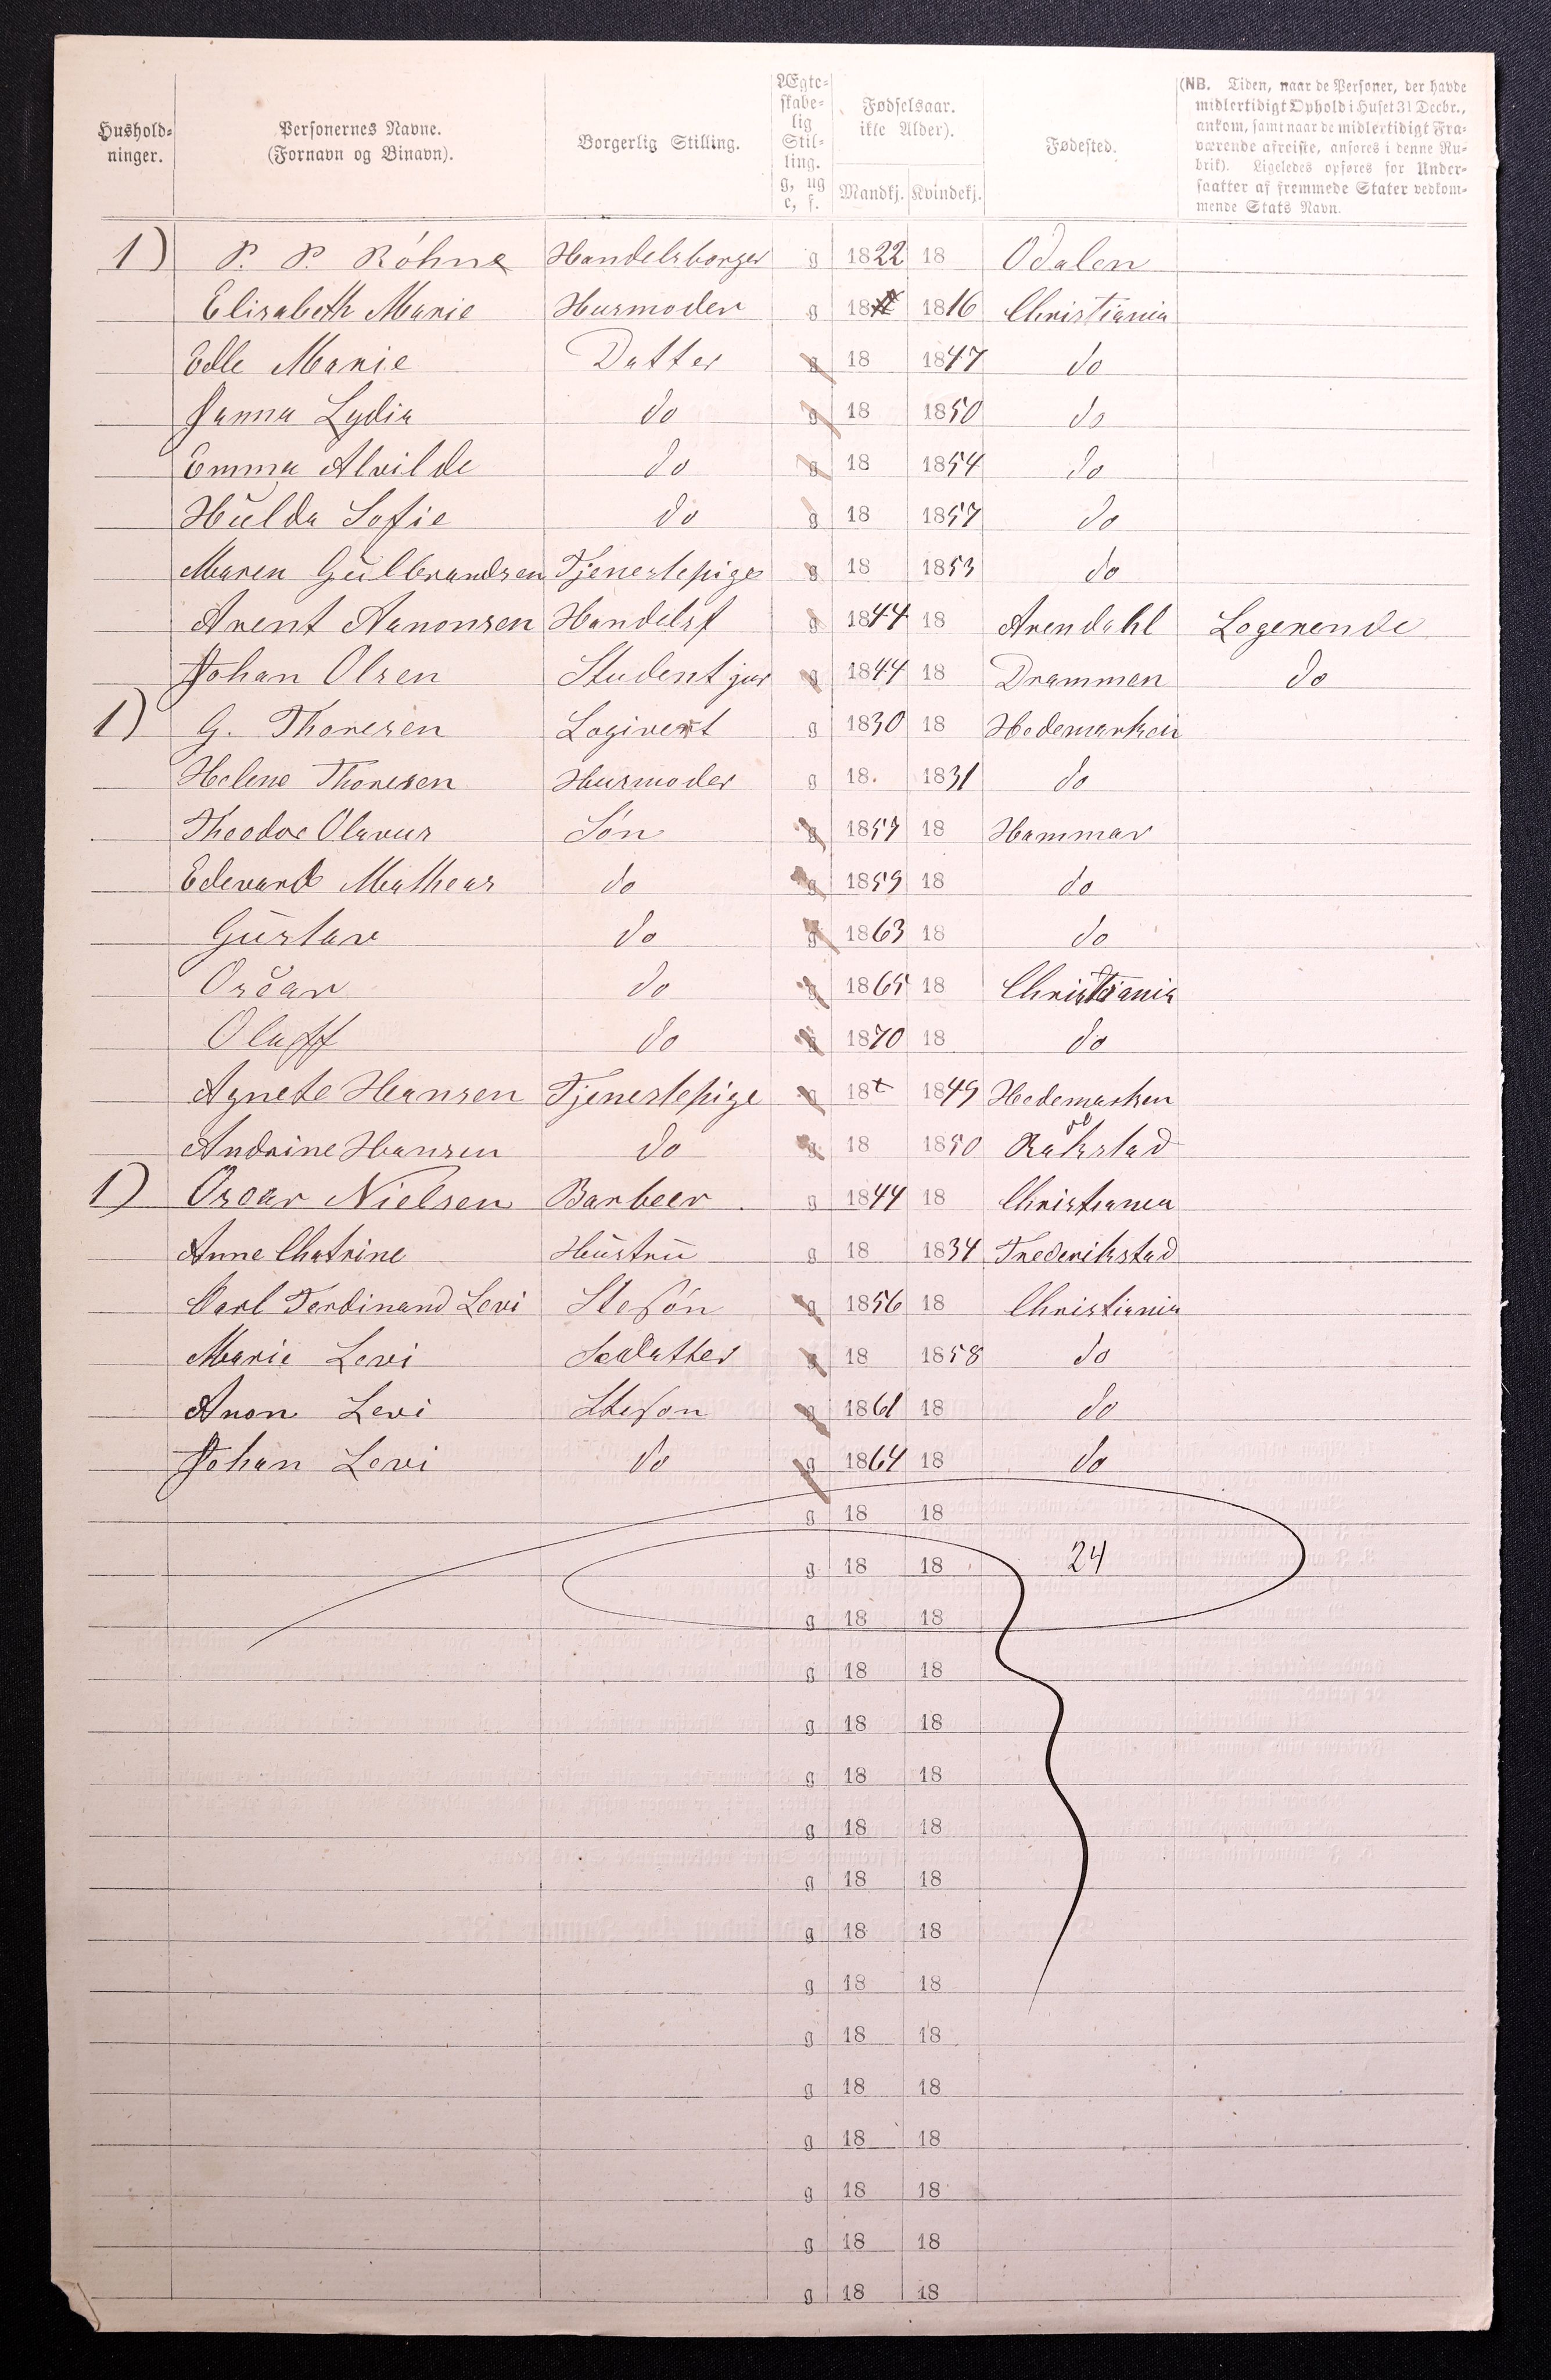 Hushold-
ninger.
Personernes Navne.
(Fornavn og Binavn).
Borgerlig Stilling.
Ægte-
skabe-
lig
Stil-
ling.
g, ug
e, f.
Fødselsaar.
ikke Alder).
Mandkj. Kvindekj.
Fødested.
(NB. Tiden, naar de Personer, der havde
midlertidigt Ophold i Huset 31 Decbr.,
ankom, samt naar de midlertidigt Fra-
værende afreiste, anføres i denne Ru-
brik). Ligeledes opføres for Under-
saatter af fremmede Stater vedkom-
mende Stats Navn.
1) P. P. Röhne Handelsborger g 1822 18 Odalen
Elisabeth Marie Husmoder g 18 1816 Christiania
Edle Marie Datter g 18 1847 do
Janna Lydia do g 18 1850 do
Emma Alvilde do g 18 1854 do
Hulda Sofie do g 18 1857 do
Maren Gulbrandsen Tjenestepige g 18 1853 do
Arent Aanonsen Handelsf g 1844 18 Arendahl Logerende
Johan Olsen Student jur g 1844 18 Drammen do
1) G. Thoresen Logivert g 1830 18 Hedemarken
Helene Thoresen Husmoder g 18. 1831 do
Theodor Olavus Søn g 1857 18 Hammar
Edevard Matheas do g 1859 18 do
Gustav do g 1863 18 do
Oscar do g 1865 18 Christiania
Olaff do g 1870 18 do
Agnete Hansen Tjenestepige g 18 1849 Hedemarken
Andrine Hansen do g 18 1850 Rakstad
1) Oscar Nielsen Barbeer g 1844 18 Christiania
Anne Chatrine Hustru g 18 1834 Frederikstad
Carl Ferdinand Levi Stesøn g 1856 18 Christiania
Marie Levi g 18 1858 do
Aron Levi Steson g 1861 18 do
Johan Levi do g 1864 18 do
g 18 18
g 18 18 24
g 18 18
g 18 18
g 18 18
g 18 18
g 18 18
g 18 18
g 18 18
g 18 18
g 18 18
g 18 18
g 18 18
g 18 18
g 18 18
g 18 18